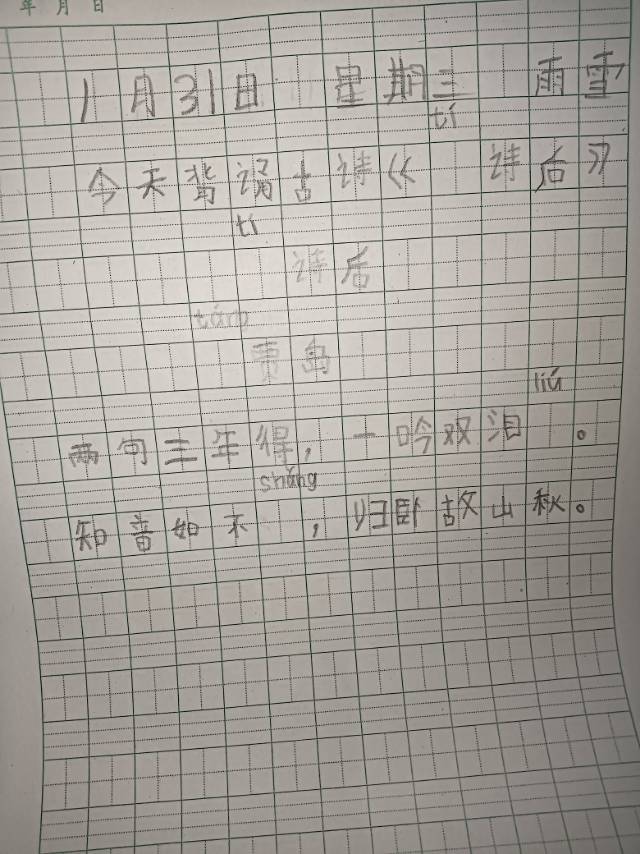 年 月 日
1月31日 星期三 雨雪
tí
今天背诵古诗《 诗后》
tí
诗后
táno
贾岛
liú
两句三年得，一吟双泪 。
shǎng
知音如不 ，归卧故山秋。